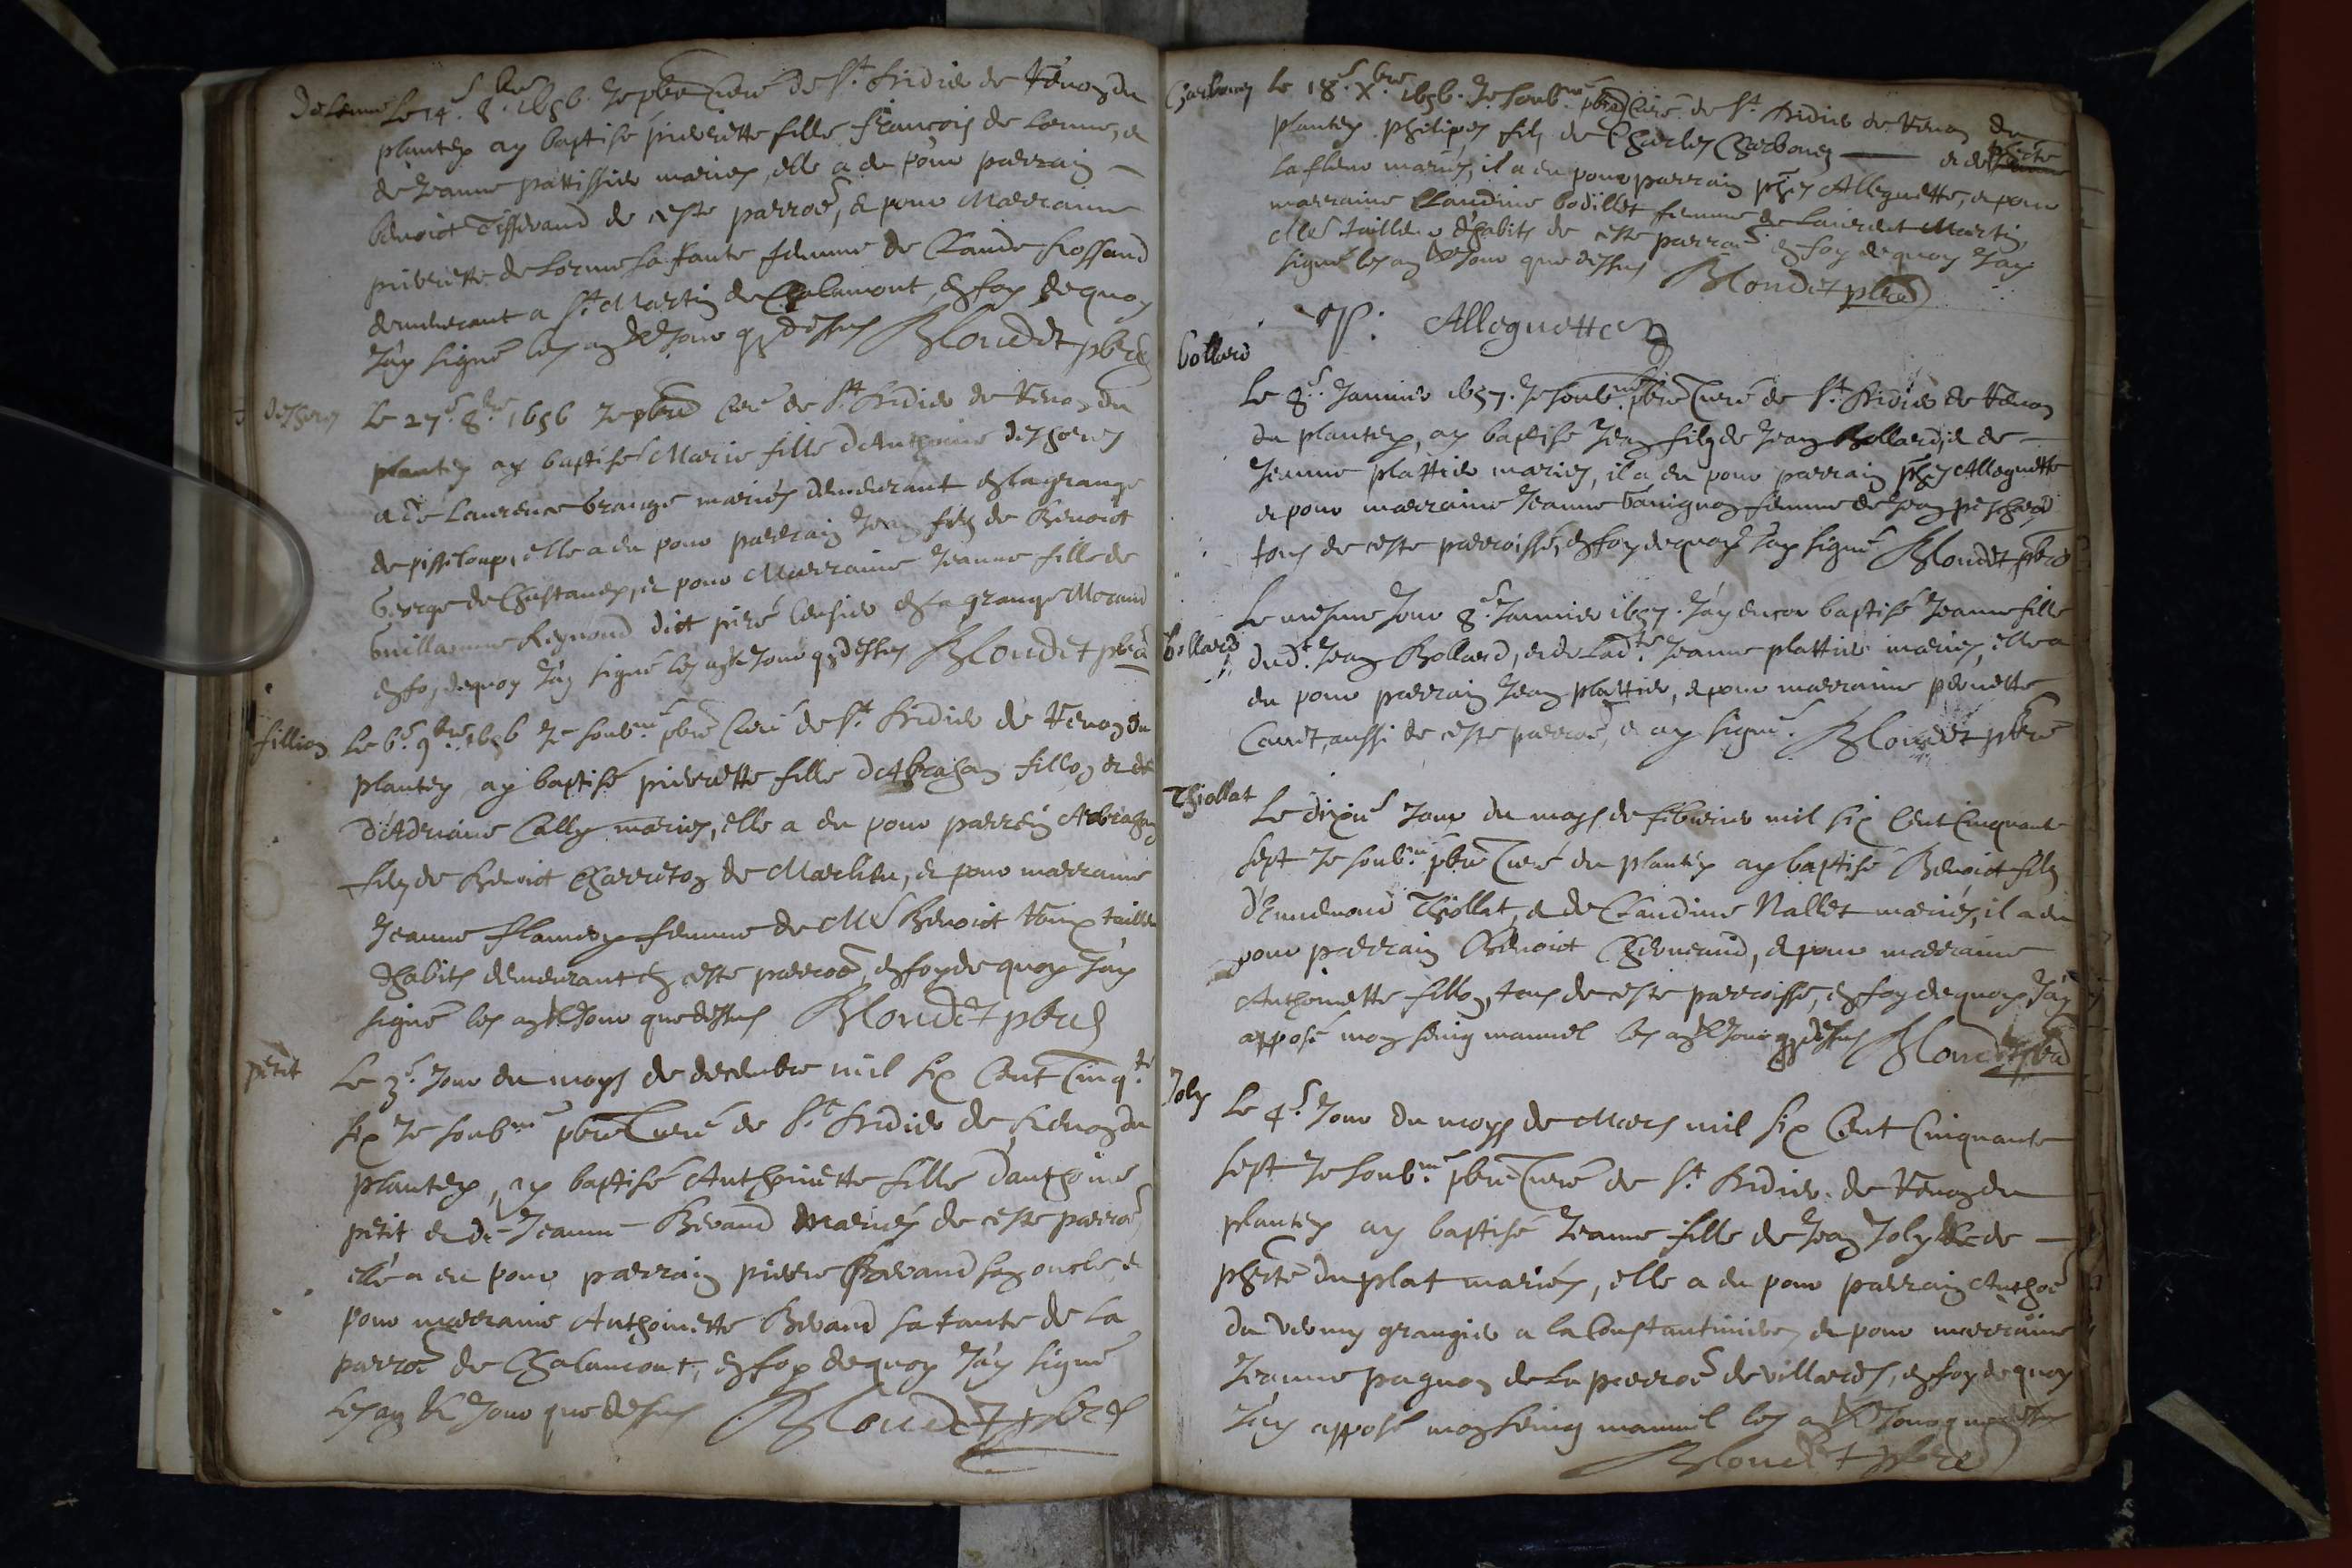 Delorme Le 14e 8bre 1656. Je pbre Curé de St Didier de Renon du
plantey ay baptisé pierrette fille françois de Lorme, et
de Jeanne pattissier mariez, elle a eu pour parrain
benoict Tisserand de ceste parroe, et pour Marrainne
pierrette de Lorme sa tante femme de Claude Rossand
demeurant a St Martin de Chalamont, en foy dequoy
J'ay signé les an & Jour q dessus Blondet pbre
Le 27e 8bre 1656 Je pbre Curé de St Didier de Renon du
plantey ay baptisé Marie fille d'Anthoine
et de Laurence Grange mariés demeurant en la grange
de pisseloup, elle a eu pour parrain Jean filz de Benoict
George de Chastaney, et pour Marrainne Jeanne fille de
Guillaume Reynond dict piré en la grange Morand
en foy dequoy J'ay signé les an & Jour q dessus Blondet pbre
fillion Le 6e 9bre 1656 Je soubné pbre Curé de St Didier de Renon du
plantey ay baptisé pierrette fille d'Abraham fillon et de
d'Adriane Cally mariez, elle a eu pour parrein Abraham
filz de Benoict Charreton de Marlieu, et pour marraine
Jeanne flamery femme de Me Benoict tailleur
d'habits demeurant en ceste parroe, en foy de quoy J'ay
signé les an & Jour que dessus Blondet pbre
petit Le 3e Jour du moys de decembre mil six Cent Cinqte
six Je soubné pbre Curé de St Didier de Renon du
plantey, ay baptisé Anthoinette fille d'anthoine
petit et de Jeanne Bevand Mariez de ceste parroe,
elle a eu pour parrain pierre Bevand son oncle et
pour marraine Anthoinette Bevand sa tante de La
parroe de Chalamont, en foy dequoy J'ay signé
les an & Jour que dessus Blondet pbre
Charboney Le 18e Xbre 1656. Je soubné pbre Curé de St Didier de Renon du
plantey philipes filz de Charles Charboney et de
Lafleur mariés, il a eu pour parrain phes Alleguette, et pour
marraine Claudine bodillet femme de Laurent Martin,
Me tailleur d'habits de ceste parroe en foy dequoy J'ay
signé les an & Jour que dessus Blondet pbre
P: Alleguette
bollard
Le 8e Janvier 1657. Je soubné pbre Curé de St Didier de Renon
du plantey, ay baptisé Jean filz de Jean Bollard, et de
Jeanne plattier mariez, il a eu pour parrain phes Alleguette
et pour marraine Jeanne femme de Jean peschard
tous de ceste parroisse, en foy dequoy J'ay signé Blondet pbre
Le mesme Jour 8e Janvier 1657. J'ay encor baptisé Jeanne fille
bollard dudt Jean Bollard, et de Ladte Jeanne plattier mariez, elle a
eu pour parrain Jean plattier, et pour marraine pernette
aussi de ceste parroe, et ay signé. Blondet pbre
Thiollat Le dixie Jour du moys de febvrier mil six Cent Cinquante
sept Je soubné pbre Curé du plantey ay baptisé Benoict filz
d'Ennemond Thiollat, et de Claudine Nallet mariés, il a eu
pour parrain Benoict Chevneraud, et pour marraine
Anthoinette fillon, tous de ceste parroisse, en foy dequoy J'ay
apposé mon seing manuel les an & Jour q dessus Blondet pbre
Joly Le 4e Jour du moys de Mars mil six Cent Cinquante
sept Je soubné pbre Curé de St Didier de Renon du
plantey ay baptisé Jeanne fille de Jean Joly & de
phte du plat mariés, elle a eu pour parrain Anthoe
du verney grangier a la Constantiniere, et pour marraine
Jeanne pagnon de La parroe de villards, en foy dequoy
J'ay apposé mon seing manuel les an & Jour que dessus
Blondet pbre